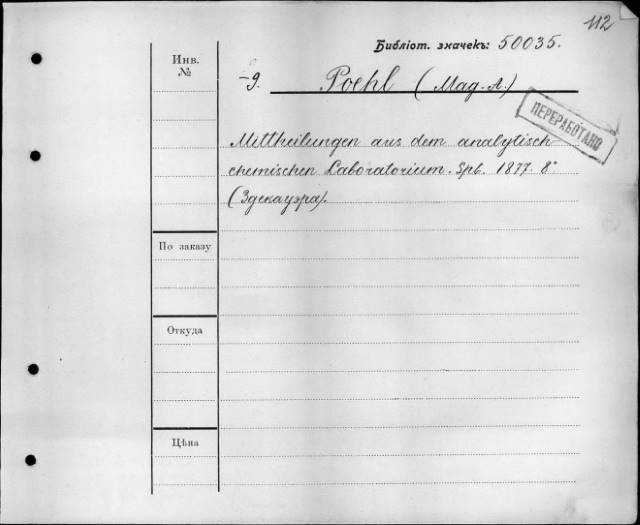 112
Библіот. значекъ: 50035.
Инв.
№
–9. Poehl (Mag. A.)
ПЕРЕРАБОТАНО
Mittheilungen aus dem analytisch-
chemischen Laboratorium. Spb. 1877. 8°
(Здекауэра).
По заказу
Откуда
Цѣна